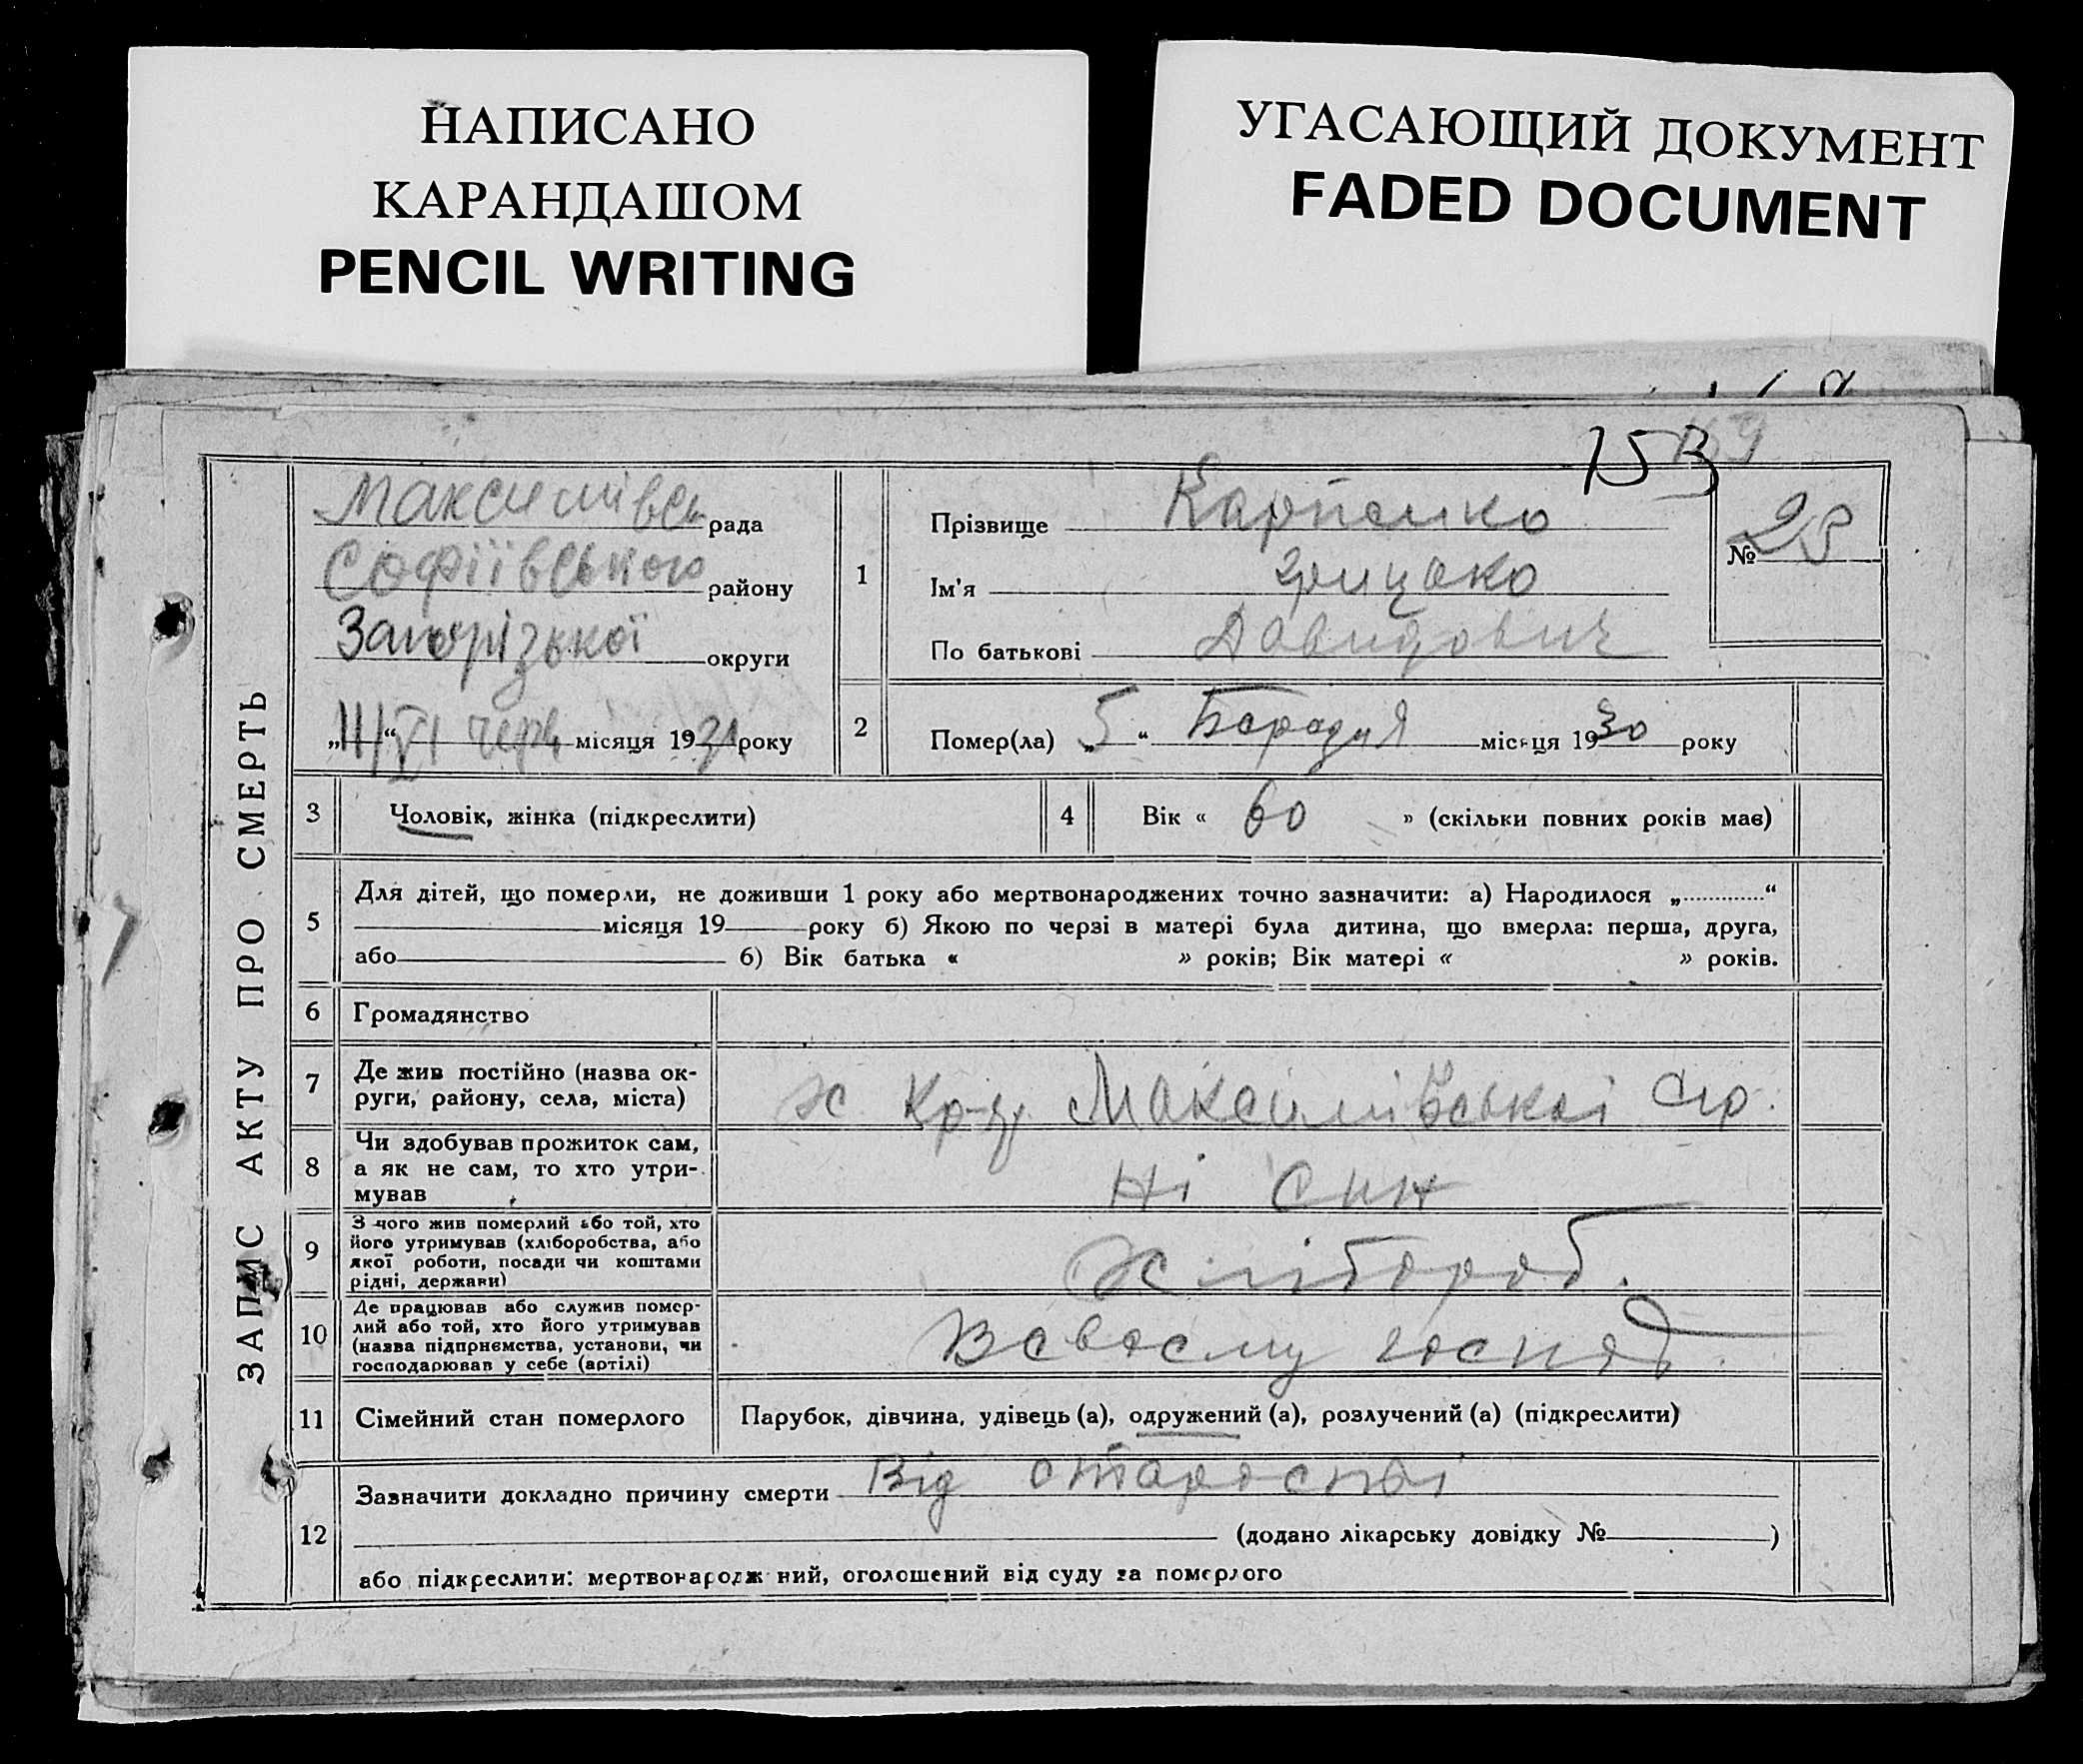 НАПИСАНО
КАРАНДАШОМ
PENCIL WRITING
УГАСАЮЩИЙ ДОКУМЕНТ
FADED DOCUMENT
153
ЗАПИС АКТУ ПРО СМЕРТЬ
Максимівськ рада
Софіївського району
Запорізької округи
„11/VI“ черв місяця 1931 року
1 Прізвище Карпенко
Ім'я Грицько
По батькові Давидович
№ 28
2 Помер(ла) „5“ місяця 1930 року
3 Чоловік, жінка (підкреслити)
4 Вік « 60 » (скільки повних років має)
5 Для дітей, що померли, не доживши 1 року або мертвонароджених точно зазначити: а) Народилося „............“
місяця 19 року б) Якою по черзі в матері була дитина, що вмерла: перша, друга,
або б) Вік батька « » років; Вік матері « » років.
6 Громадянство
7 Де жив постійно (назва ок-
руги, району, села, міста)
Максимівської с/р.
8 Чи здобував прожиток сам,
а як не сам, то хто утри-
мував
Ні син
9 З чого жив померлий або той, хто
його утримував (хліборобства, або
якої роботи, посади чи коштами
рідні, держави)
хлібороб.
10 Де працював або служив помер-
лий або той, хто його утримував
(назва підприємства, установи, чи
господарював у себе (артілі)
В своєму господ.
11 Сімейний стан померлого
Парубок, дівчина, удівець (а), одружений (а), розлучений (а) (підкреслити)
12 Зазначити докладно причину смерти Від старости
(додано лікарську довідку № )
або підкреслити: мертвонароджений, оголошений від суду за померлого